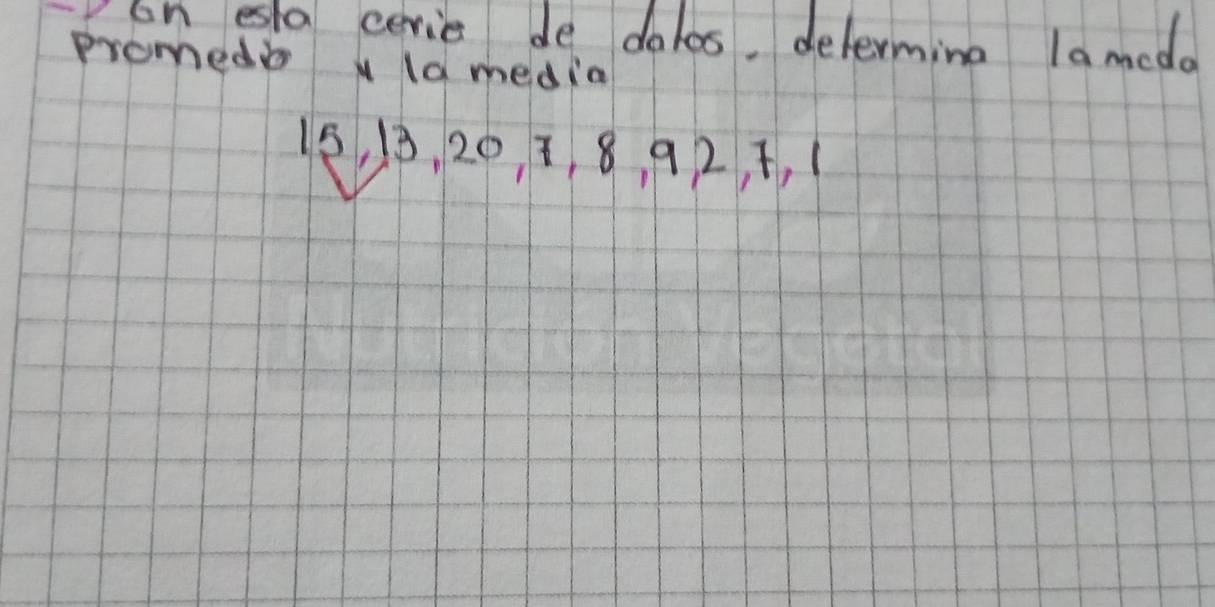 En esta cerie de datos. determina la moda
Promedio y la media
15, 13, 20, 7, 8, 9, 2, 7, 1
Nutrición Vegetal